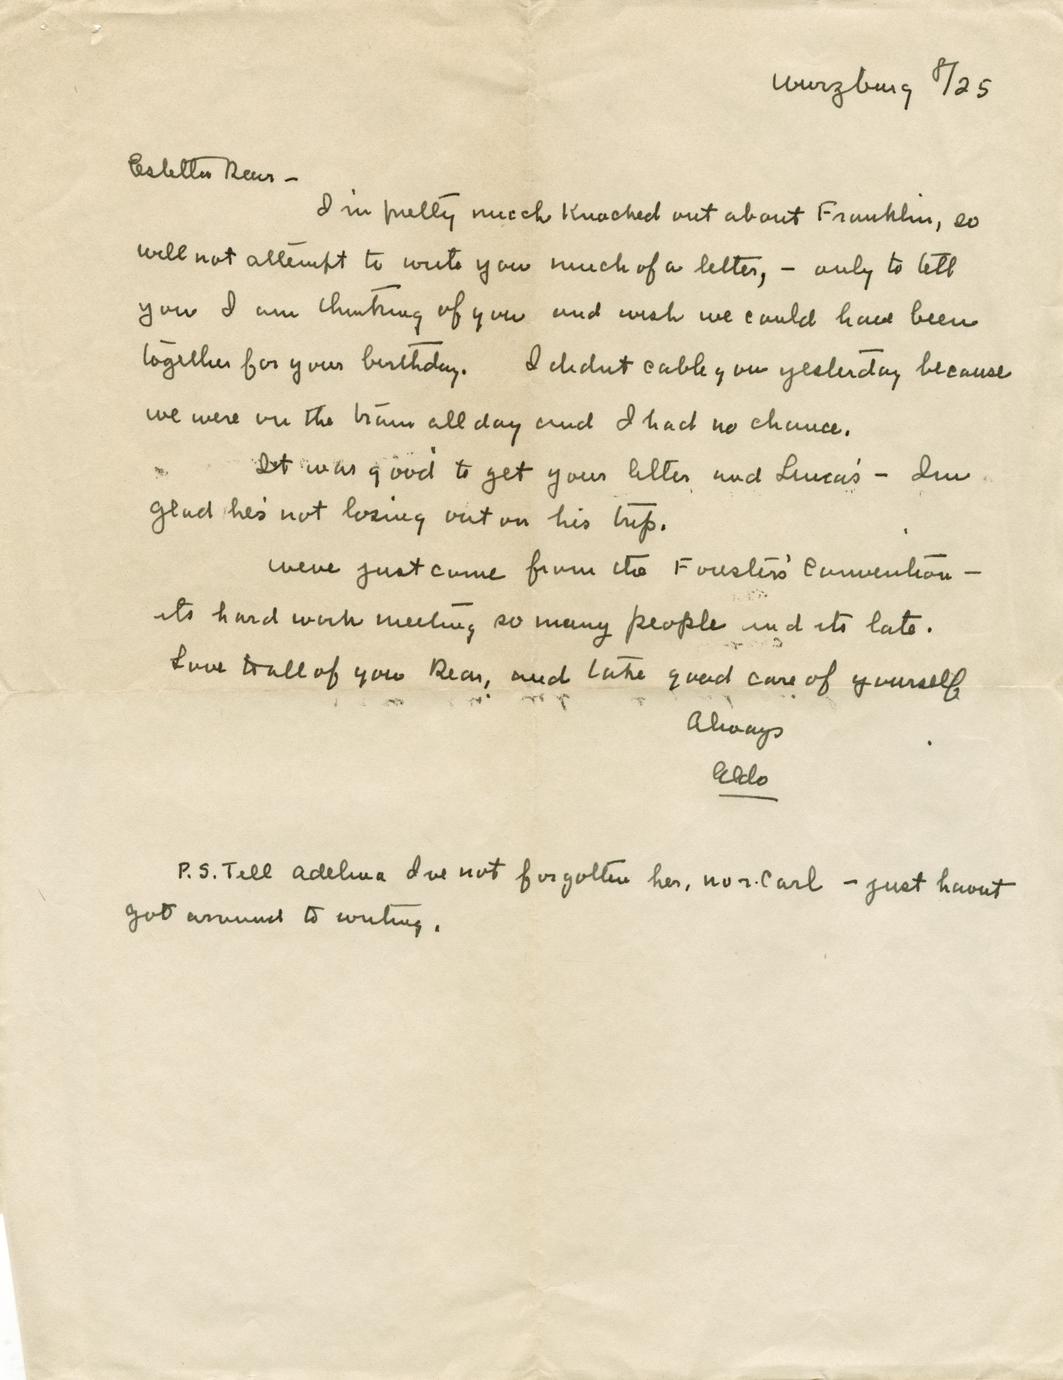 Wurzburg 8/25
Estella Dear –
I'm pretty much knocked out about Franklin, so
will not attempt to write you much of a letter, – only to tell
you I am thinking of you and wish we could have been
together for your birthday. I didnt cable you yesterday because
we were on the train all day and I had no chance.
It was good to get your letter and Luna's – Im
glad he's not losing out on his trip.
weve just come from the Foresters' Convention –
its hard work meeting so many people and its late.
Love to all of you Dear, and take good care of yourself
Always
Aldo
P.S. Tell Adelina Ive not forgotten her, nor Carl – just havnt
got around to writing.